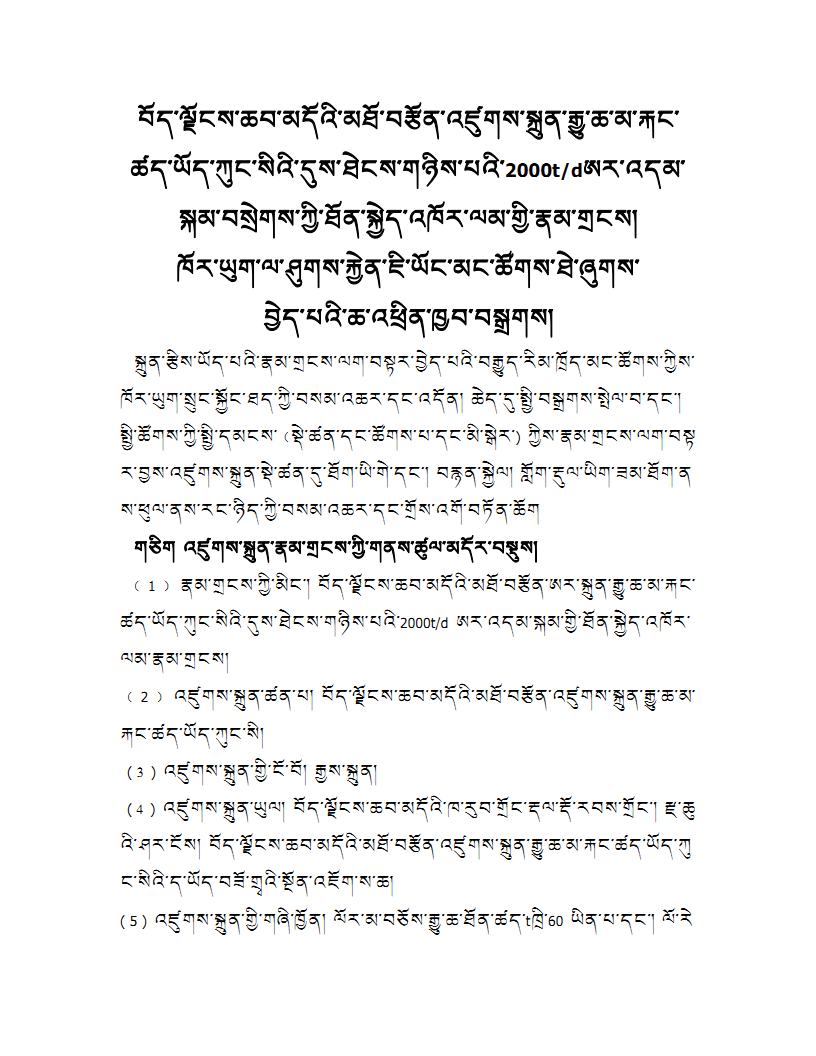 བོད་ལྗོངས་ཆབ་མདོའི་མཐོ་བརྩོན་འཛུགས་སྐྲུན་རྒྱུ་ཆ་མ་རྐང་
ཚད་ཡོད་ཀུང་སིའི་དུས་ཐེངས་གཉིས་པའི་2000t/dཨར་འདམ་
སྐམ་བསྲེགས་ཀྱི་ཐོན་སྐྱེད་འཁོར་ལམ་གྱི་རྣམ་གྲངས།
ཁོར་ཡུག་ལ་ཤུགས་རྐྱེན་ཇི་ཡོང་མང་ཚོགས་ཐེ་ཞུགས་
བྱེད་པའི་ཆ་འཕྲིན་ཁྱབ་བསྒྲགས།
སྐྲུན་རྩིས་ཡོད་པའི་རྣམ་གྲངས་ལག་བསྟར་བྱེད་པའི་བརྒྱུད་རིམ་ཁྲོད་མང་ཚོགས་ཀྱིས་
ཁོར་ཡུག་སྲུང་སྐྱོང་ཐད་ཀྱི་བསམ་འཆར་དང་འདོན། ཆེད་དུ་སྤྱི་བསྒྲགས་སྤེལ་བ་དང་།
སྤྱི་ཚོགས་ཀྱི་སྤྱི་དམངས་（སྡེ་ཚན་དང་ཚོགས་པ་དང་མི་སྒེར་）ཀྱིས་རྣམ་གྲངས་ལག་བསྟ
ར་བྱས་འཛུགས་སྐྲུན་སྡེ་ཚན་དུ་ཐོག་ཡི་གེ་དང་། བརྙན་སྐྱེལ། གློག་རྡུལ་ཡིག་ཟམ་ཐོག་ན
ས་ཕུལ་ནས་རང་ཉིད་ཀྱི་བསམ་འཆར་དང་གྲོས་འགོ་བཏོན་ཆོག
གཅིག འཛུགས་སྐྲུན་རྣམ་གྲངས་ཀྱི་གནས་ཚུལ་མདོར་བསྡུས།
（1）རྣམ་གྲངས་ཀྱི་མིང་། བོད་ལྗོངས་ཆབ་མདོའི་མཐོ་བརྩོན་ཨར་སྐྲུན་རྒྱུ་ཆ་མ་རྐང་
ཚད་ཡོད་ཀུང་སིའི་དུས་ཐེངས་གཉིས་པའི་2000t/d ཨར་འདམ་སྐམ་གྱི་ཐོན་སྐྱེད་འཁོར་
ལམ་རྣམ་གྲངས།
（2）འཛུགས་སྐྲུན་ཚན་པ། བོད་ལྗོངས་ཆབ་མདོའི་མཐོ་བརྩོན་འཛུགས་སྐྲུན་རྒྱུ་ཆ་མ་
རྐང་ཚད་ཡོད་ཀུང་སི།
（3）འཛུགས་སྐྲུན་གྱི་ངོ་བོ། རྒྱས་སྐྲུན།
（4）འཛུགས་སྐྲུན་ཡུལ། བོད་ལྗོངས་ཆབ་མདོའི་ཁ་རུབ་གྲོང་རྡལ་རྡོ་རབས་གྲོང་། རྫ་ཆུ
འི་ཤར་ངོས། བོད་ལྗོངས་ཆབ་མདོའི་མཐོ་བརྩོན་འཛུགས་སྐྲུན་རྒྱུ་ཆ་མ་རྐང་ཚད་ཡོད་ཀུ
ང་སིའི་ད་ཡོད་བཟོ་གྲྭའི་སྔོན་འཇོག་ས་ཆ།
（5）འཛུགས་སྐྲུན་གྱི་གཞི་ཁྱོན། ལོར་མ་བཅོས་རྒྱུ་ཆ་ཐོན་ཚད་tཁྲི་60 ཡིན་པ་དང་། ལོ་རེ